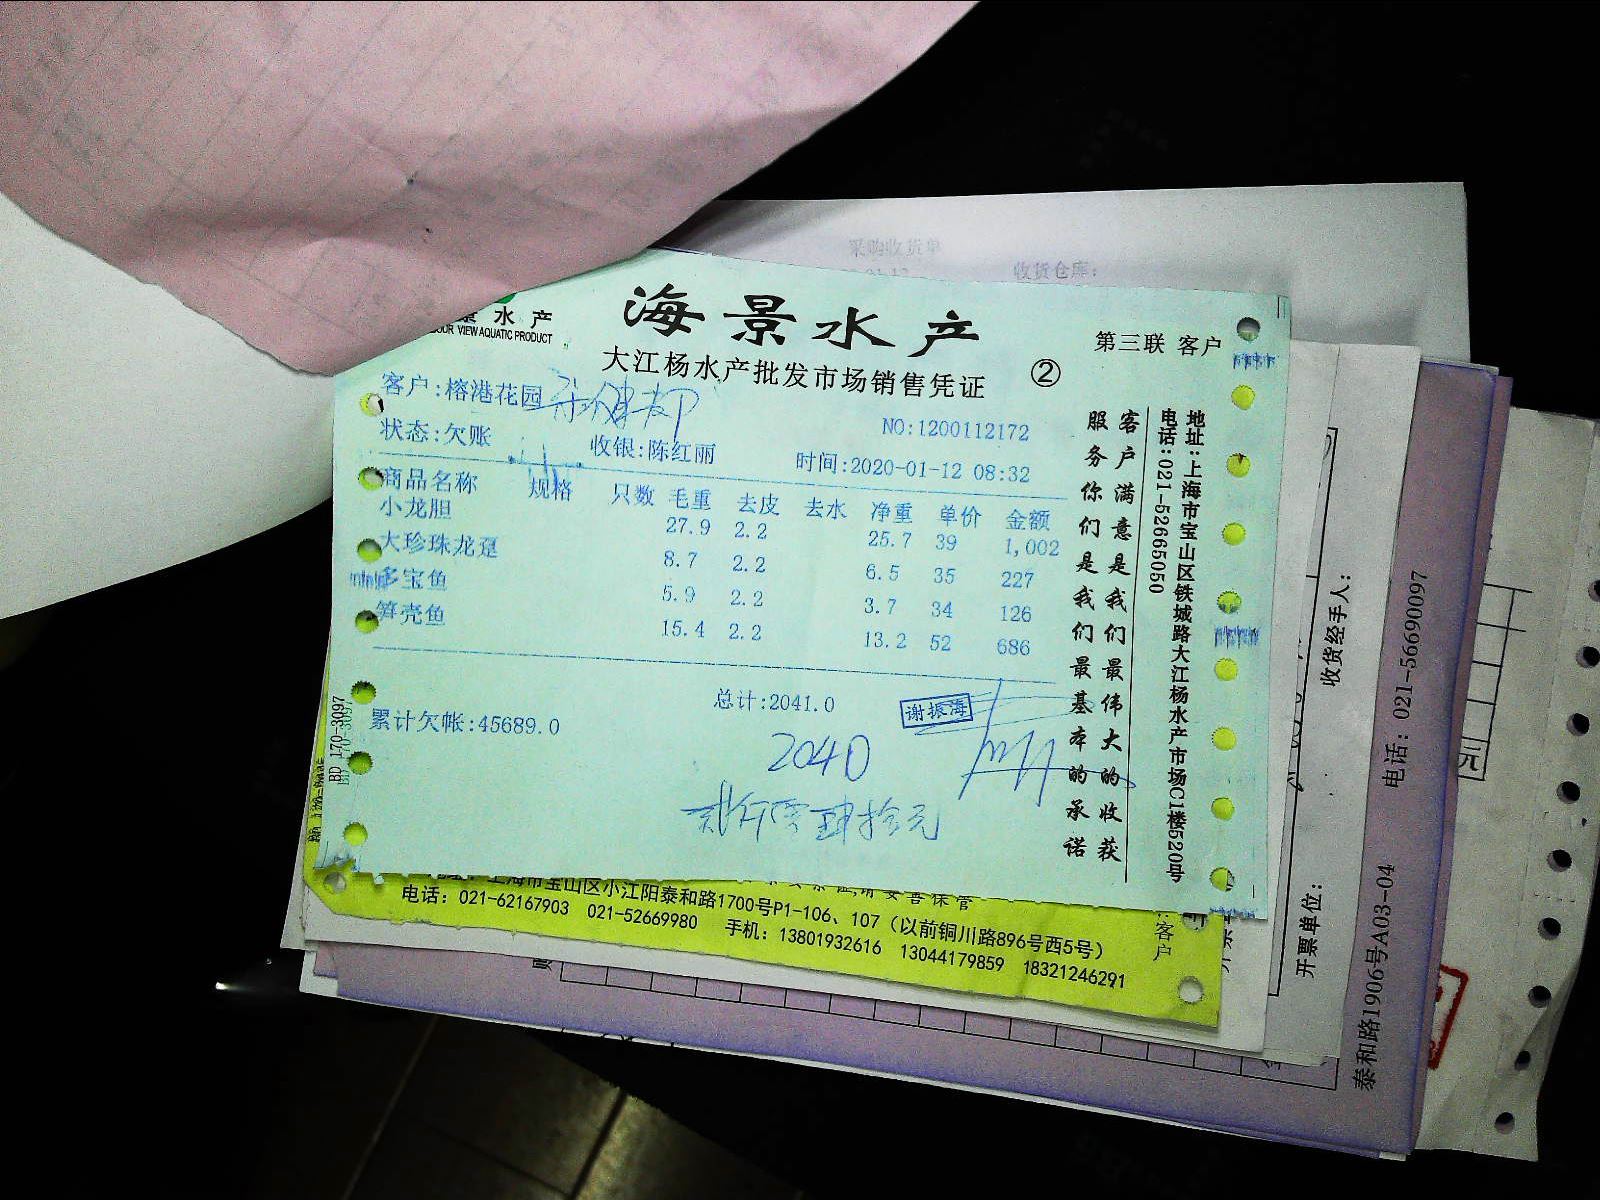 采购收货单
收货仓库:
景水产
OUR VIEW AQUATIC PRODUCT
海景水产
大江杨水产批发市场销售凭证
②
第三联 客户
客户:榕港花园
状态:欠账
收银:陈红丽
NO:1200112172
时间:2020-01-12 08:32
商品名称 规格 只数 毛重 去皮 去水 净重 单价 金额
小龙胆 27.9 2.2 25.7 39 1,002
大珍珠龙趸 8.7 2.2 6.5 35 227
多宝鱼 5.9 2.2 3.7 34 126
笋壳鱼 15.4 2.2 13.2 52 686
总计:2041.0
谢振海
累计欠帐:45689.0
2040
贰仟零肆拾元
客户满意是我们最伟大的收获
服务你们是我们最基本的承诺
地址:上海市宝山区铁城路大江杨水产市场C1楼520号
电话:021-52665050
BD 170-3097
上海市宝山区小江阳泰和路1700号P1-106、107（以前铜川路896号西5号）
电话: 021-62167903 021-52669980 手机: 13801932616 13044179859 18321246291
:客户
收货经手人:
开票单位:
电话: 021-56690097
泰和路1906号A03-04
元